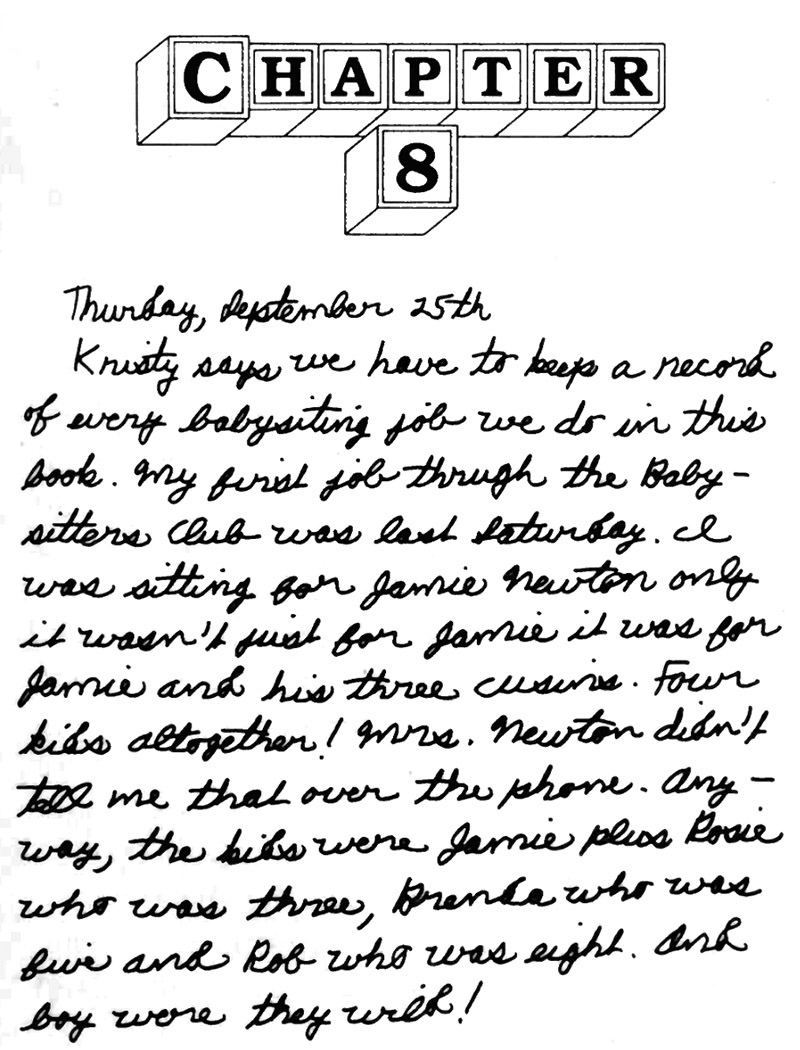 CHAPTER
8
Thursday, September 25th
Kristy says we have to keep a record
of every babysiting job we do in this
book. My first job thrugh the Baby-
sitters Club was last Saturday. I
was sitting for Jamie Newton only
it wasn't just for Jamie it was for
Jamie and his three cusins. Four
kids altogether! Mrs. Newton didn't
tell me that over the phone. Any-
way, the kids were Jamie plus Rosie
who was three, Brenda who was
five and Rob who was eight. And
boy were they wild!